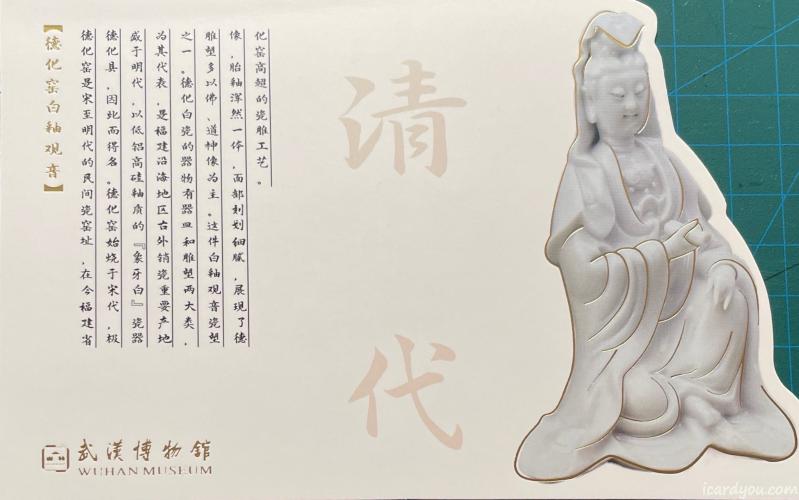 【德化窑白釉观音】
德化窑是宋至明代的民间瓷窑址，在今福建省
德化县，因此而得名。德化窑始烧于宋代，极
盛于明代，以低铝高硅釉质的『象牙白』瓷器
为其代表，是福建沿海地区古外销瓷重要产地
之一。德化白瓷的器物有器皿和雕塑两大类，
雕塑多以佛、道神像为主。这件白釉观音瓷塑
像，胎釉浑然一体，面部刻划细腻，展现了德
化窑高超的瓷雕工艺。
清代
武漢博物館
WUHAN MUSEUM
icardyou.com